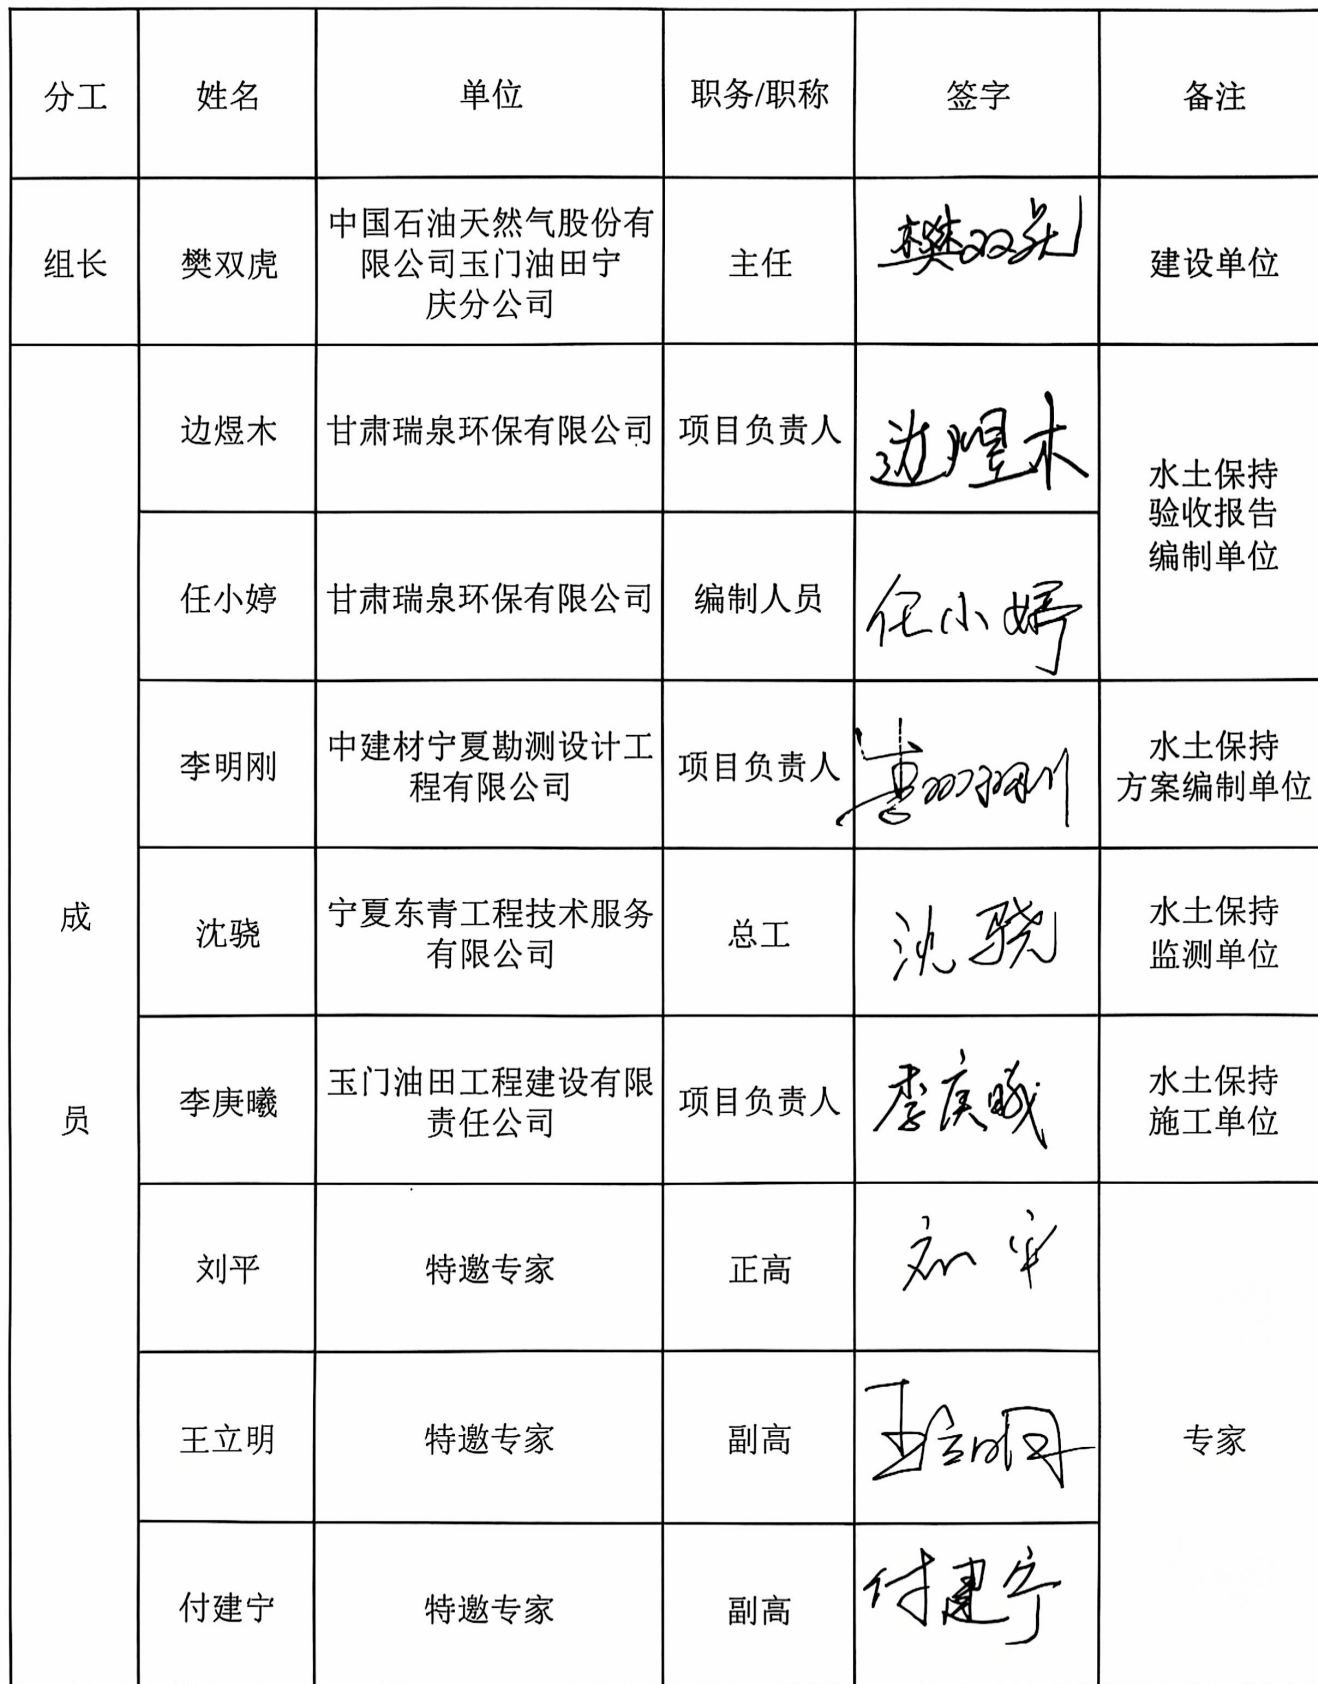 分工 姓名 单位 职务/职称 签字 备注
组长 樊双虎 中国石油天然气股份有
限公司玉门油田宁
庆分公司 主任 樊双虎 建设单位
成
员
边煜木 甘肃瑞泉环保有限公司 项目负责人 边煜木
水土保持
验收报告
编制单位
任小婷 甘肃瑞泉环保有限公司 编制人员 任小婷
李明刚 中建材宁夏勘测设计工
程有限公司 项目负责人
水土保持
方案编制单位
沈骁 宁夏东青工程技术服务
有限公司 总工 沈骁
水土保持
监测单位
李庚曦 玉门油田工程建设有限
责任公司 项目负责人 李庚曦
水土保持
施工单位
刘平 特邀专家 正高 刘平
专家
王立明 特邀专家 副高 王立明
付建宁 特邀专家 副高 付建宁